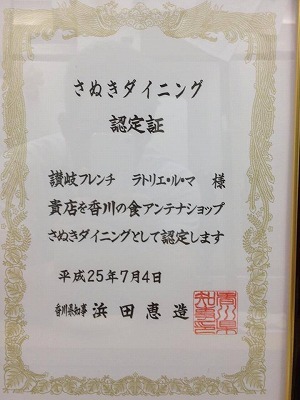 さぬきダイニング
認定証
讃岐フレンチ　ラトリエ・ル・マ　様
貴店を香川の食アンテナショップ
さぬきダイニングとして認定します
平成25年7月4日
香川県知事　浜田恵造
香川県知事之印